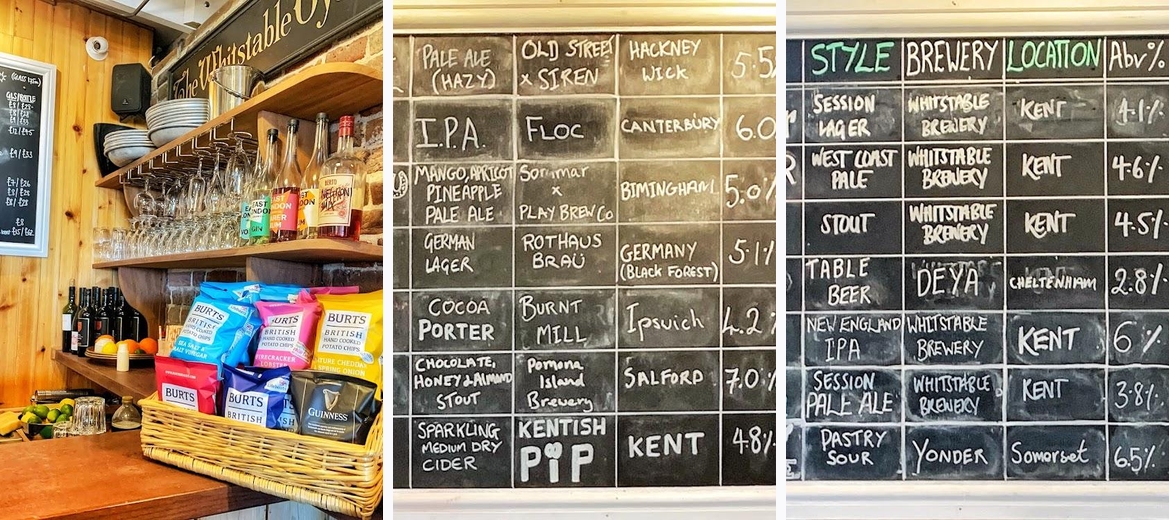 The Whitstable Oy
BURTS
BRITISH
HAND COOKED
POTATO CHIPS
SEA SALT &
MALT VINEGAR
BURTS
BRITISH
HAND COOKED
POTATO CHIPS
FIRECRACKER
LOBSTER
BURTS
BRITISH
HAND COOKED
POTATO CHIPS
MATURE CHEDDAR
SPRING ONION
BURTS
BURTS
BRITISH
GUINNESS
EAST
LONDON
GIN
PALE ALE (HAZY) OLD STREET x SIREN HACKNEY WICK 5.5%
I.P.A. FLOC CANTERBURY 6.0
MANGO, APRICOT PINEAPPLE PALE ALE Sommar x PLAY BREW Co BIMINGHAM 5.0%
GERMAN LAGER ROTHAUS BRAÜ GERMANY (BLACK FOREST) 5.1%
COCOA PORTER BURNT MILL Ipswich 4.2%
CHOCOLATE, HONEY & ALMOND STOUT Pomona Island Brewery SALFORD 7.0%
SPARKLING MEDIUM DRY CIDER KENTISH PiP KENT 4.8%
STYLE BREWERY LOCATION Abv%
SESSION LAGER WHITSTABLE BREWERY KENT 4.1%
WEST COAST PALE WHITSTABLE BREWERY KENT 4.6%
STOUT WHITSTABLE BREWERY KENT 4.5%
TABLE BEER DEYA CHELTENHAM 2.8%
NEW ENGLAND IPA WHITSTABLE BREWERY KENT 6%
SESSION PALE ALE WHITSTABLE BREWERY KENT 3.8%
PASTRY SOUR YONDER Somerset 6.5%